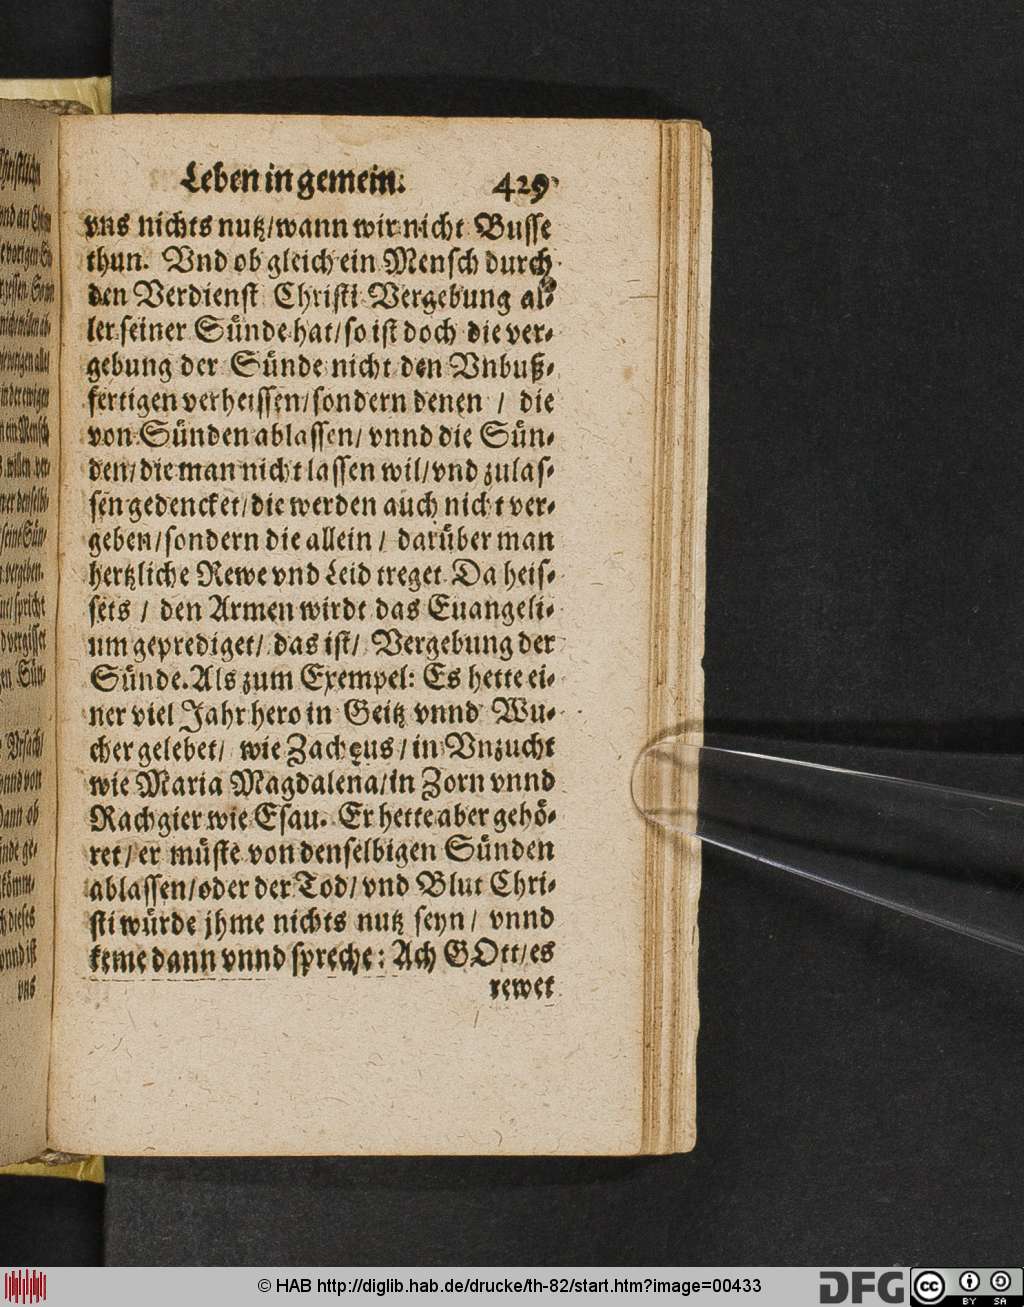 Leben in gemein. 429
vns nichts nutz/wann wir nicht Busse
thun. Vnd ob gleich ein Mensch durch
den Verdienst Christi Vergebung al⸗
ler seiner Sünde hat/so ist doch die ver⸗
gebung der Sünde nicht den Vnbuß⸗
fertigen verheissen/sondern denen / die
von Sünden ablassen/ vnnd die Sün⸗
den/die man nicht lassen wil/vnd zulas⸗
sen gedencket/die werden auch nicht ver⸗
geben/sondern die allein / darüber man
hertzliche Rewe vnd Leid treget. Da heis⸗
sets / den Armen wirdt das Euangeli⸗
um geprediget/ das ist/ Vergebung der
Sünde. Als zum Exempel: Es hette ei⸗
ner viel Jahr hero in Geitz vnnd Wu⸗
cher gelebet/ wie Zachęus/in Vnzucht
wie Maria Magdalena/in Zorn vnnd
Rachgier wie Esau. Er hette aber gehö⸗
ret/er müste von denselbigen Sünden
ablassen/oder der Tod/vnd Blut Chri⸗
sti würde jhme nichts nutz seyn/ vnnd
keme dann vnnd spreche: Ach GOtt/es
rewet
© HAB http://diglib.hab.de/drucke/th-82/start.htm?image=00433
DFG
cc BY SA